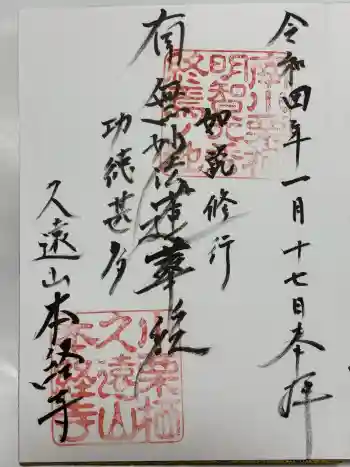 令和四年一月十七日奉拝
如説修行
南無妙法蓮華経
功徳甚多
久遠山本経寺
明智光秀
終焉ノ地
小栗栖
久遠山
本経寺